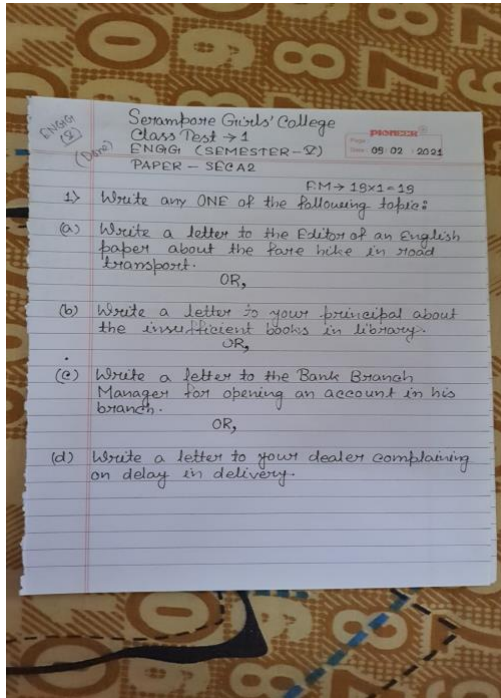 ENGG
(V)
(Done)
Serampore Girls' College
Class Test → 1
ENGG (SEMESTER-V)
PAPER - SECA2
PIONEER
Page:
Date: 05 02 2021
F.M → 15x1=15
1) Write any ONE of the following topic:
(a) Write a letter to the Editor of an English
paper about the fare hike in road
transport.
OR,
(b) Write a letter to your principal about
the insufficient books in library.
OR,
(c) Write a letter to the Bank Branch
Manager for opening an account in his
branch.
OR,
(d) Write a letter to your dealer complaining
on delay in delivery.